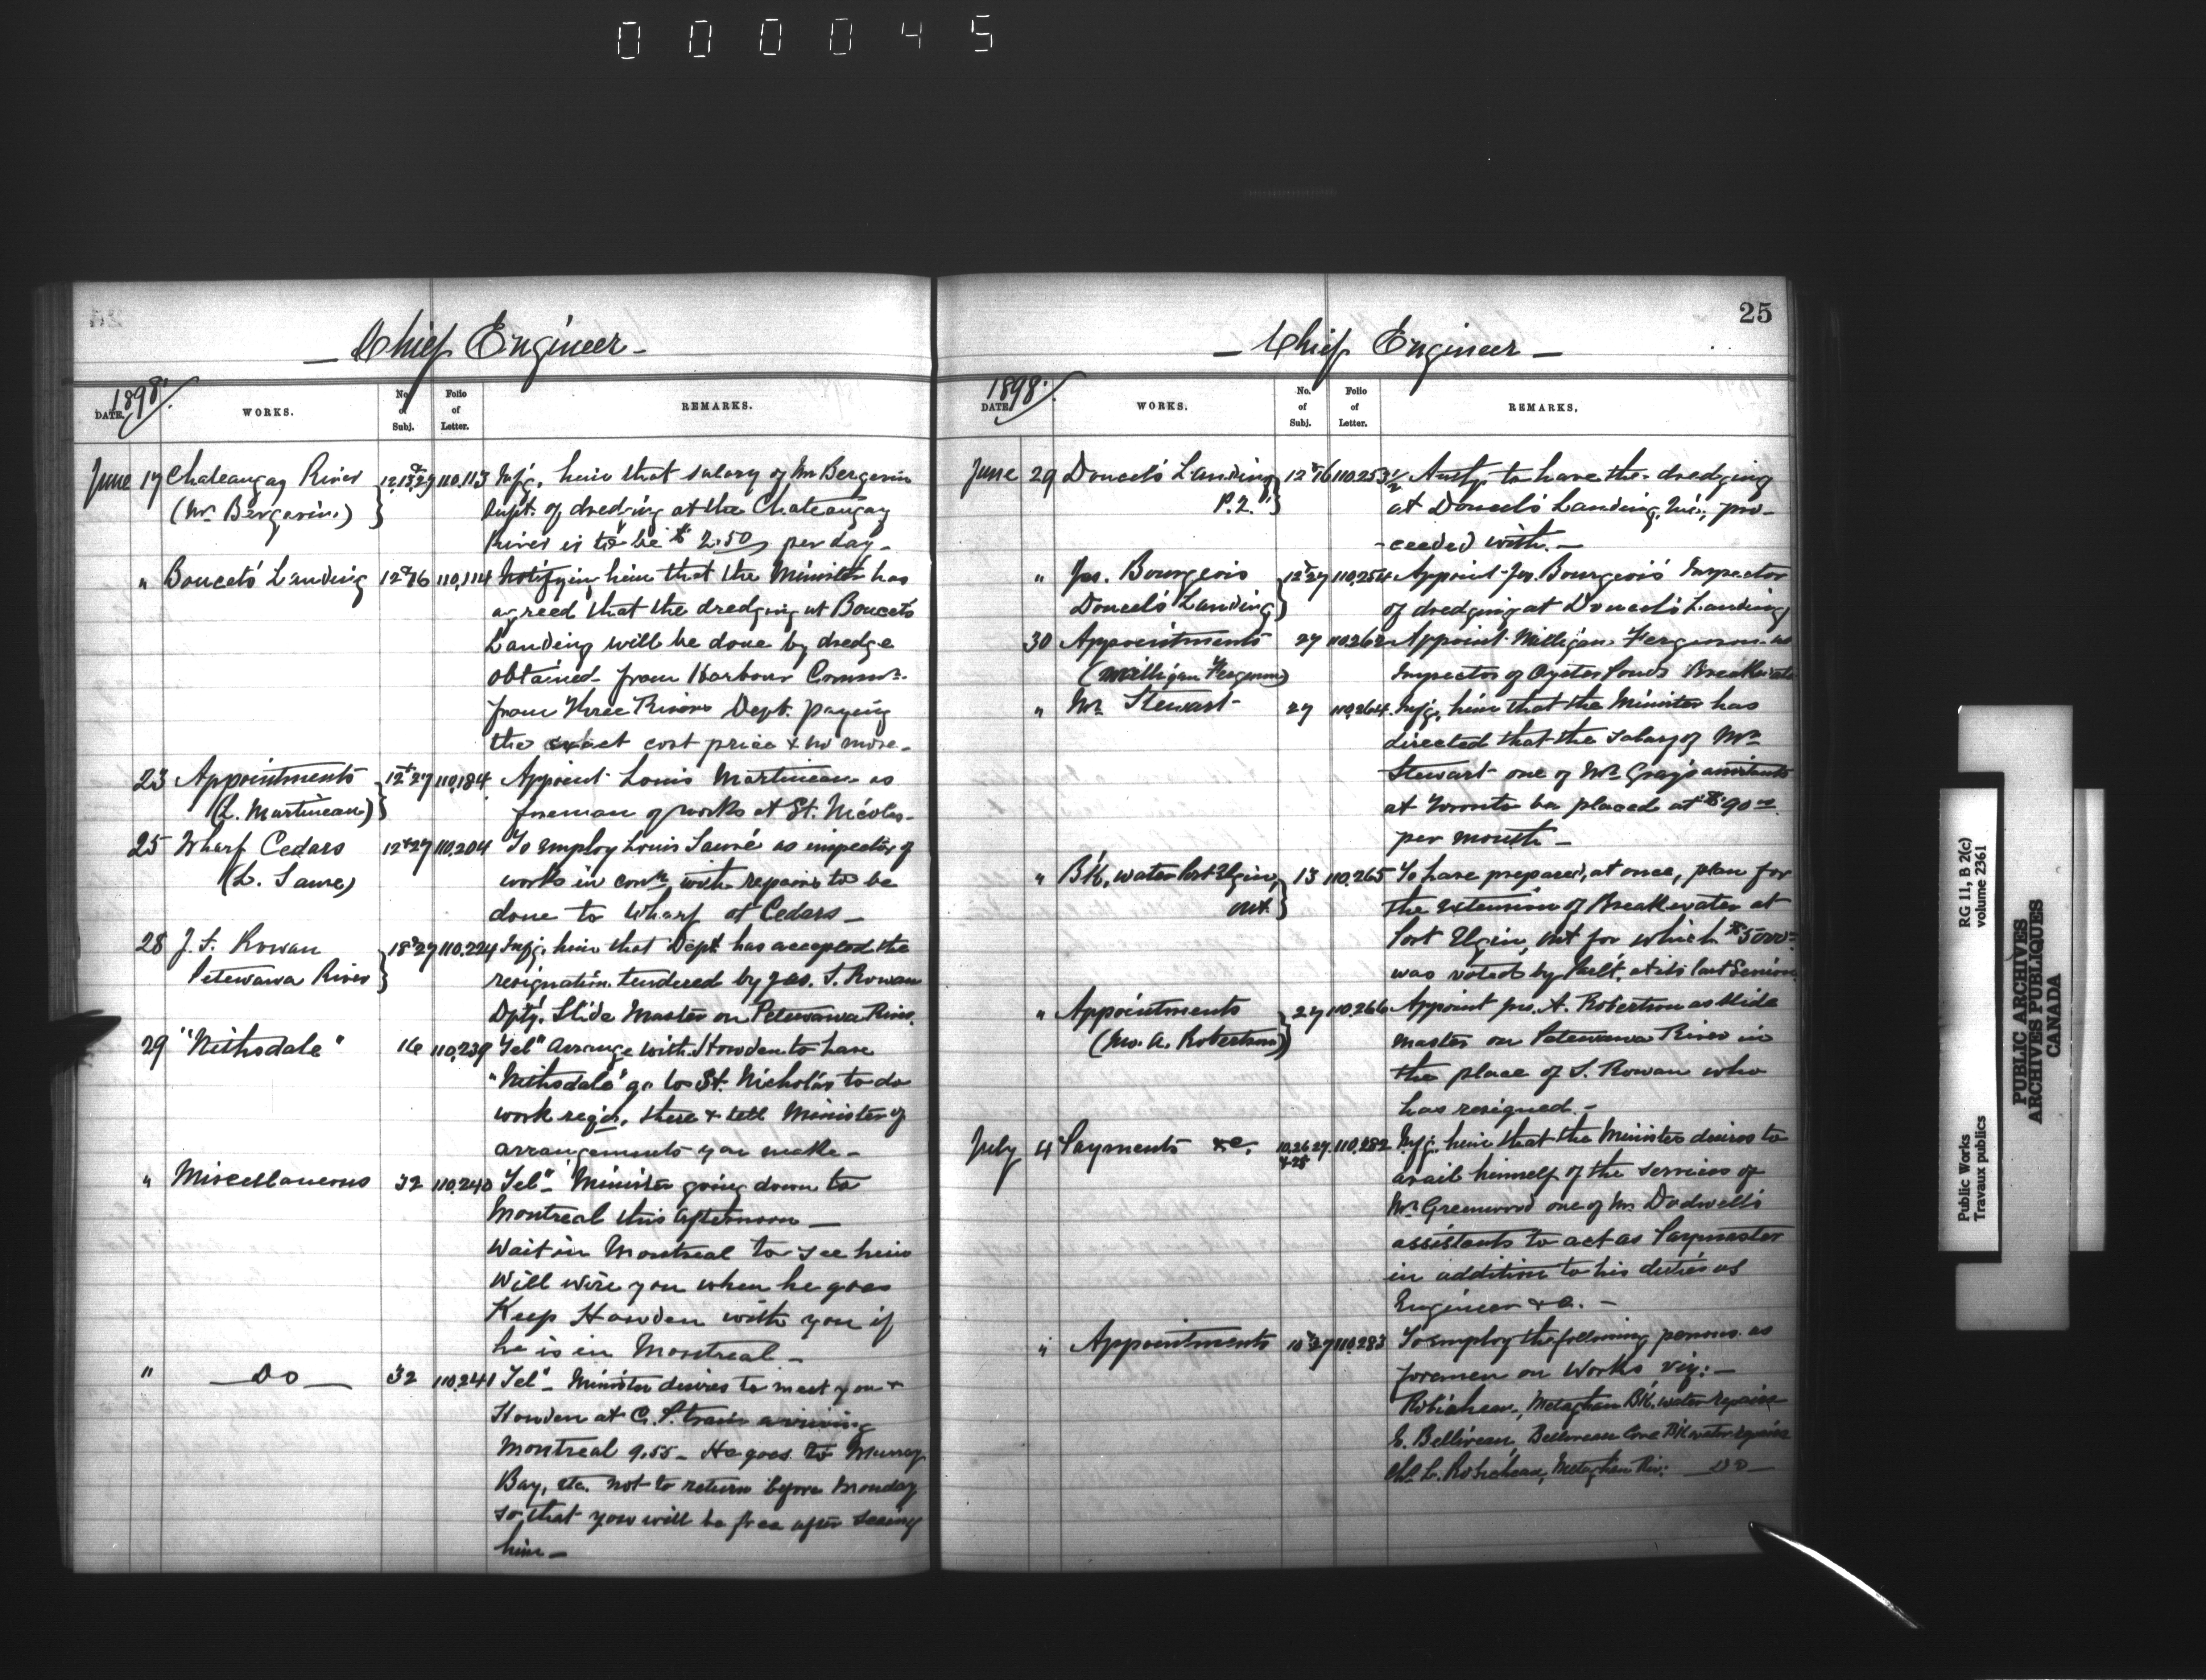 000045
Chief Engineer
1898
DATE.
WORKS.
No. of Subj.
Folio of Letter.
REMARKS.
June 17 Chateaugay River 12,13,27 110,113 Infg. him that salary of Mr Bergevin
(Mr. Bergevin) Supt. of dredging at the Chateaugay
River is to be $2.50 per day
" Doucet's Landing 12 & 16 110,114 Notifying him that the Minister has
agreed that the dredging at Doucet's
Landing will be done by dredge
obtained from Harbour Commrs.
from Three Rivers Dept. paying
the exact cost price & no more.
23 Appointments 12 & 27 110,184 Appoint Louis Martineau as
(L. Martineau) foreman of works at St. Nicolas
25 Wharf Cedars 12 & 27 110,204 To employ Louis Sauvé as inspector of
(L. Sauve) works in conn. with repairs to be
done to Wharf at Cedars
28 J. S. Rowan 18 & 27 110,224 Infg. him that Dept. has accepted the
Petewawa River resignation tendered by Jas. S. Rowan
Dpty. Slide Master on Petewawa River.
29 "Nithsdale" 16 110,239 Tel" Arrange with Howden to have
"Nithsdale" go to St. Nicholas to do
work reqd. there & tell Minister of
arrangements you make
" Miscellaneous 32 110,240 Tel" Minister going down to
Montreal this afternoon
Wait in Montreal to see him
Will wire you when he goes
Keep Howden with you if
he is in Montreal
" Do 32 110,241 Tel" Minister desires to meet you &
Howden at C. P. train arriving
Montreal 9.55 He goes to Murray
Bay, etc. not to return before Monday
so that you will be free after seeing
him
25
Chief Engineer
1898
DATE.
WORKS.
No. of Subj.
Folio of Letter.
REMARKS.
June 29 Doucet's Landing 12 & 16 110,253½ Authy. to have the dredging
P.Q. at Doucet's Landing, pro-
ceeded with.
" Jos. Bourgeois 12 & 27 110,254 Appoint Jos. Bourgeois Inspector
Doucet's Landing of dredging at Doucet's Landing
30 Appointments 27 110,262 Appoint Milligan Ferguson as
(Milligan Ferguson) Inspector of Oyster Ponds Breakwater
" Mr. Stewart 27 110,264 Infg. him that the Minister has
directed that the salary of Mr
Stewart one of Mr. Gray's assistants
at Toronto be placed at $90
per month
" Bk. water Port Elgin, Ont. 13 110,265 To have prepared, at once, plan for
the extension of Breakwater at
Port Elgin, Ont for which $5000
was voted by Parlt. at its last Session
" Appointments 27 110,266 Appoint Jno. A. Robertson as Slide
(Jno. A. Robertson) master on Petewawa River in
the place of S. Rowan who
has resigned.
July 4 Payments &c. 10,26,27 & 28 110,282 Infg. him that the Minister desires to
avail himself of the services of
Mr. Greenwood one of Mr Dodwell's
assistants to act as Paymaster
in addition to his duties as
Engineer &c.
" Appointments 10 & 27 110,283 To employ the following persons as
foremen on Works viz:
Robicheau, Meteghan Bk. water repairs
E. Belliveau, Belliveau Cove Bk water repairs
Robicheau, Meteghan Riv: Do
Public Works
Travaux publics
RG 11, B 2(c)
volume 2361
PUBLIC ARCHIVES
ARCHIVES PUBLIQUES
CANADA